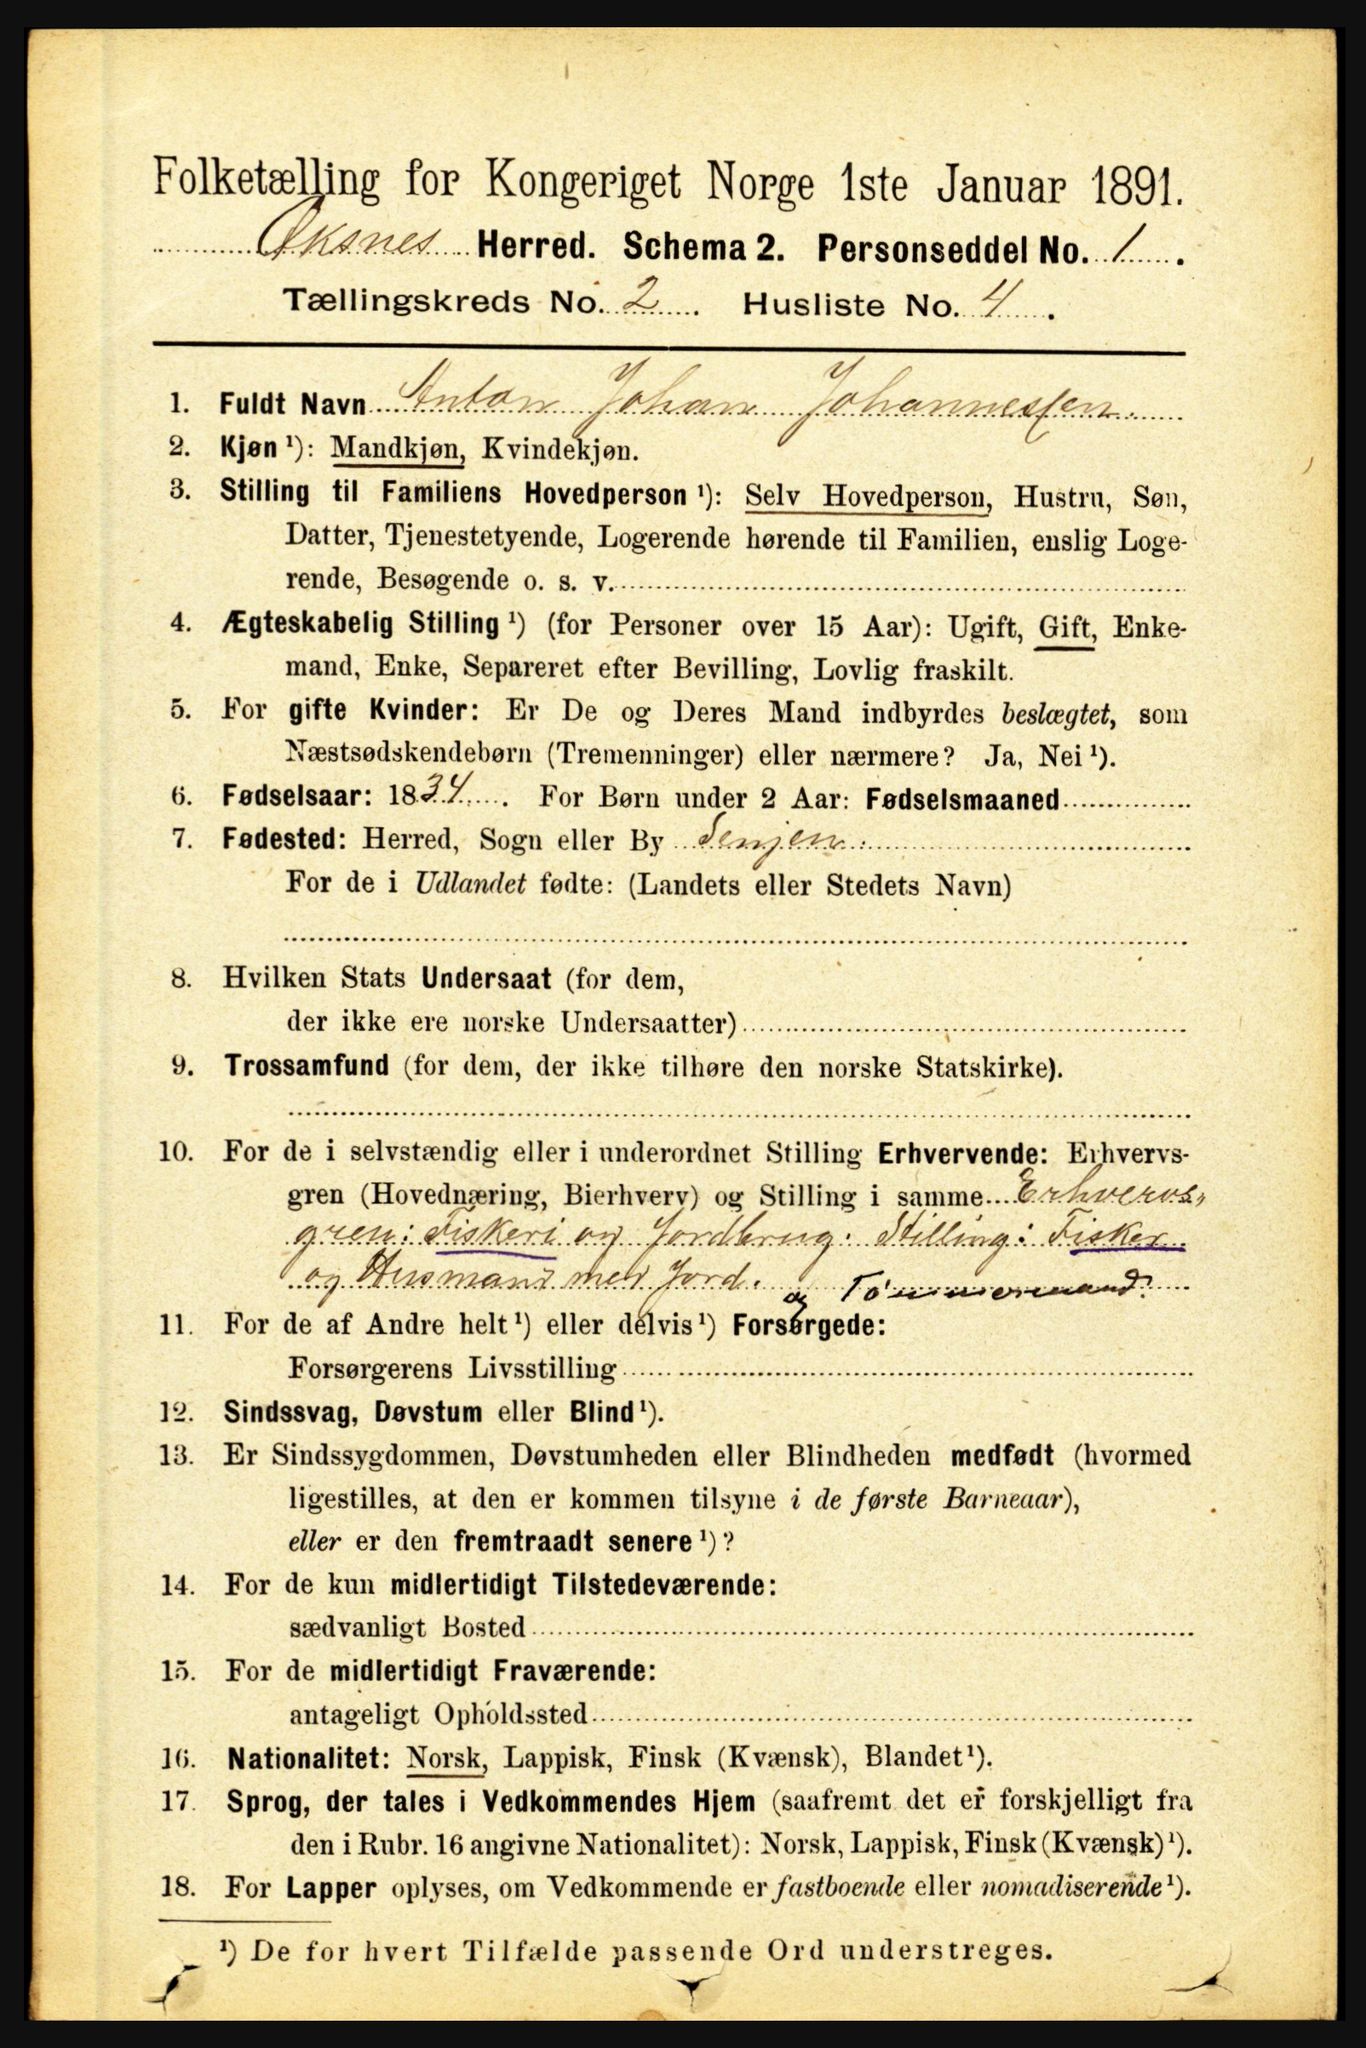 Folketælling for Kongeriget Norge 1ste Januar 1891.
Øksnes Herred. Schema 2. Personseddel No. 1.
Tællingskreds No. 2. Husliste No. 4.
1. Fuldt Navn Anton Johan Johannessen.
2. Kjøn ¹): Mandkjøn, Kvindekjøn.
3. Stilling til Familiens Hovedperson ¹): Selv Hovedperson, Hustru, Søn,
Datter, Tjenestetyende, Logerende hørende til Familien, enslig Loge-
rende, Besøgende o. s. v.
4. Ægteskabelig Stilling ¹) (for Personer over 15 Aar): Ugift, Gift, Enke-
mand, Enke, Separeret efter Bevilling, Lovlig fraskilt.
5. For gifte Kvinder: Er De og Deres Mand indbyrdes beslægtet, som
Næstsødskendebørn (Tremenninger) eller nærmere? Ja, Nei ¹).
6. Fødselsaar: 1834. For Børn under 2 Aar: Fødselsmaaned
7. Fødested: Herred, Sogn eller By Senjen.
For de i Udlandet fødte: (Landets eller Stedets Navn)
8. Hvilken Stats Undersaat (for dem,
der ikke ere norske Undersaatter)
9. Trossamfund (for dem, der ikke tilhøre den norske Statskirke).
10. For de i selvstændig eller i underordnet Stilling Erhvervende: Erhvervs-
gren (Hovednæring, Bierhverv) og Stilling i samme Erhvervs-
gren: Fiskeri og Jordbrug. Stilling: Fisker
og Husmand med Jord. og Tömmermand.
11. For de af Andre helt ¹) eller delvis ¹) Forsørgede:
Forsørgerens Livsstilling
12. Sindssvag, Døvstum eller Blind ¹).
13. Er Sindssygdommen, Døvstumheden eller Blindheden medfødt (hvormed
ligestilles, at den er kommen tilsyne i de første Barneaar),
eller er den fremtraadt senere ¹)?
14. For de kun midlertidigt Tilstedeværende:
sædvanligt Bosted
15. For de midlertidigt Fraværende:
antageligt Opholdssted
16. Nationalitet: Norsk, Lappisk, Finsk (Kvænsk), Blandet ¹).
17. Sprog, der tales i Vedkommendes Hjem (saafremt det er forskjelligt fra
den i Rubr. 16 angivne Nationalitet): Norsk, Lappisk, Finsk (Kvænsk) ¹).
18. For Lapper oplyses, om Vedkommende er fastboende eller nomadiserende ¹).
¹) De for hvert Tilfælde passende Ord understreges.